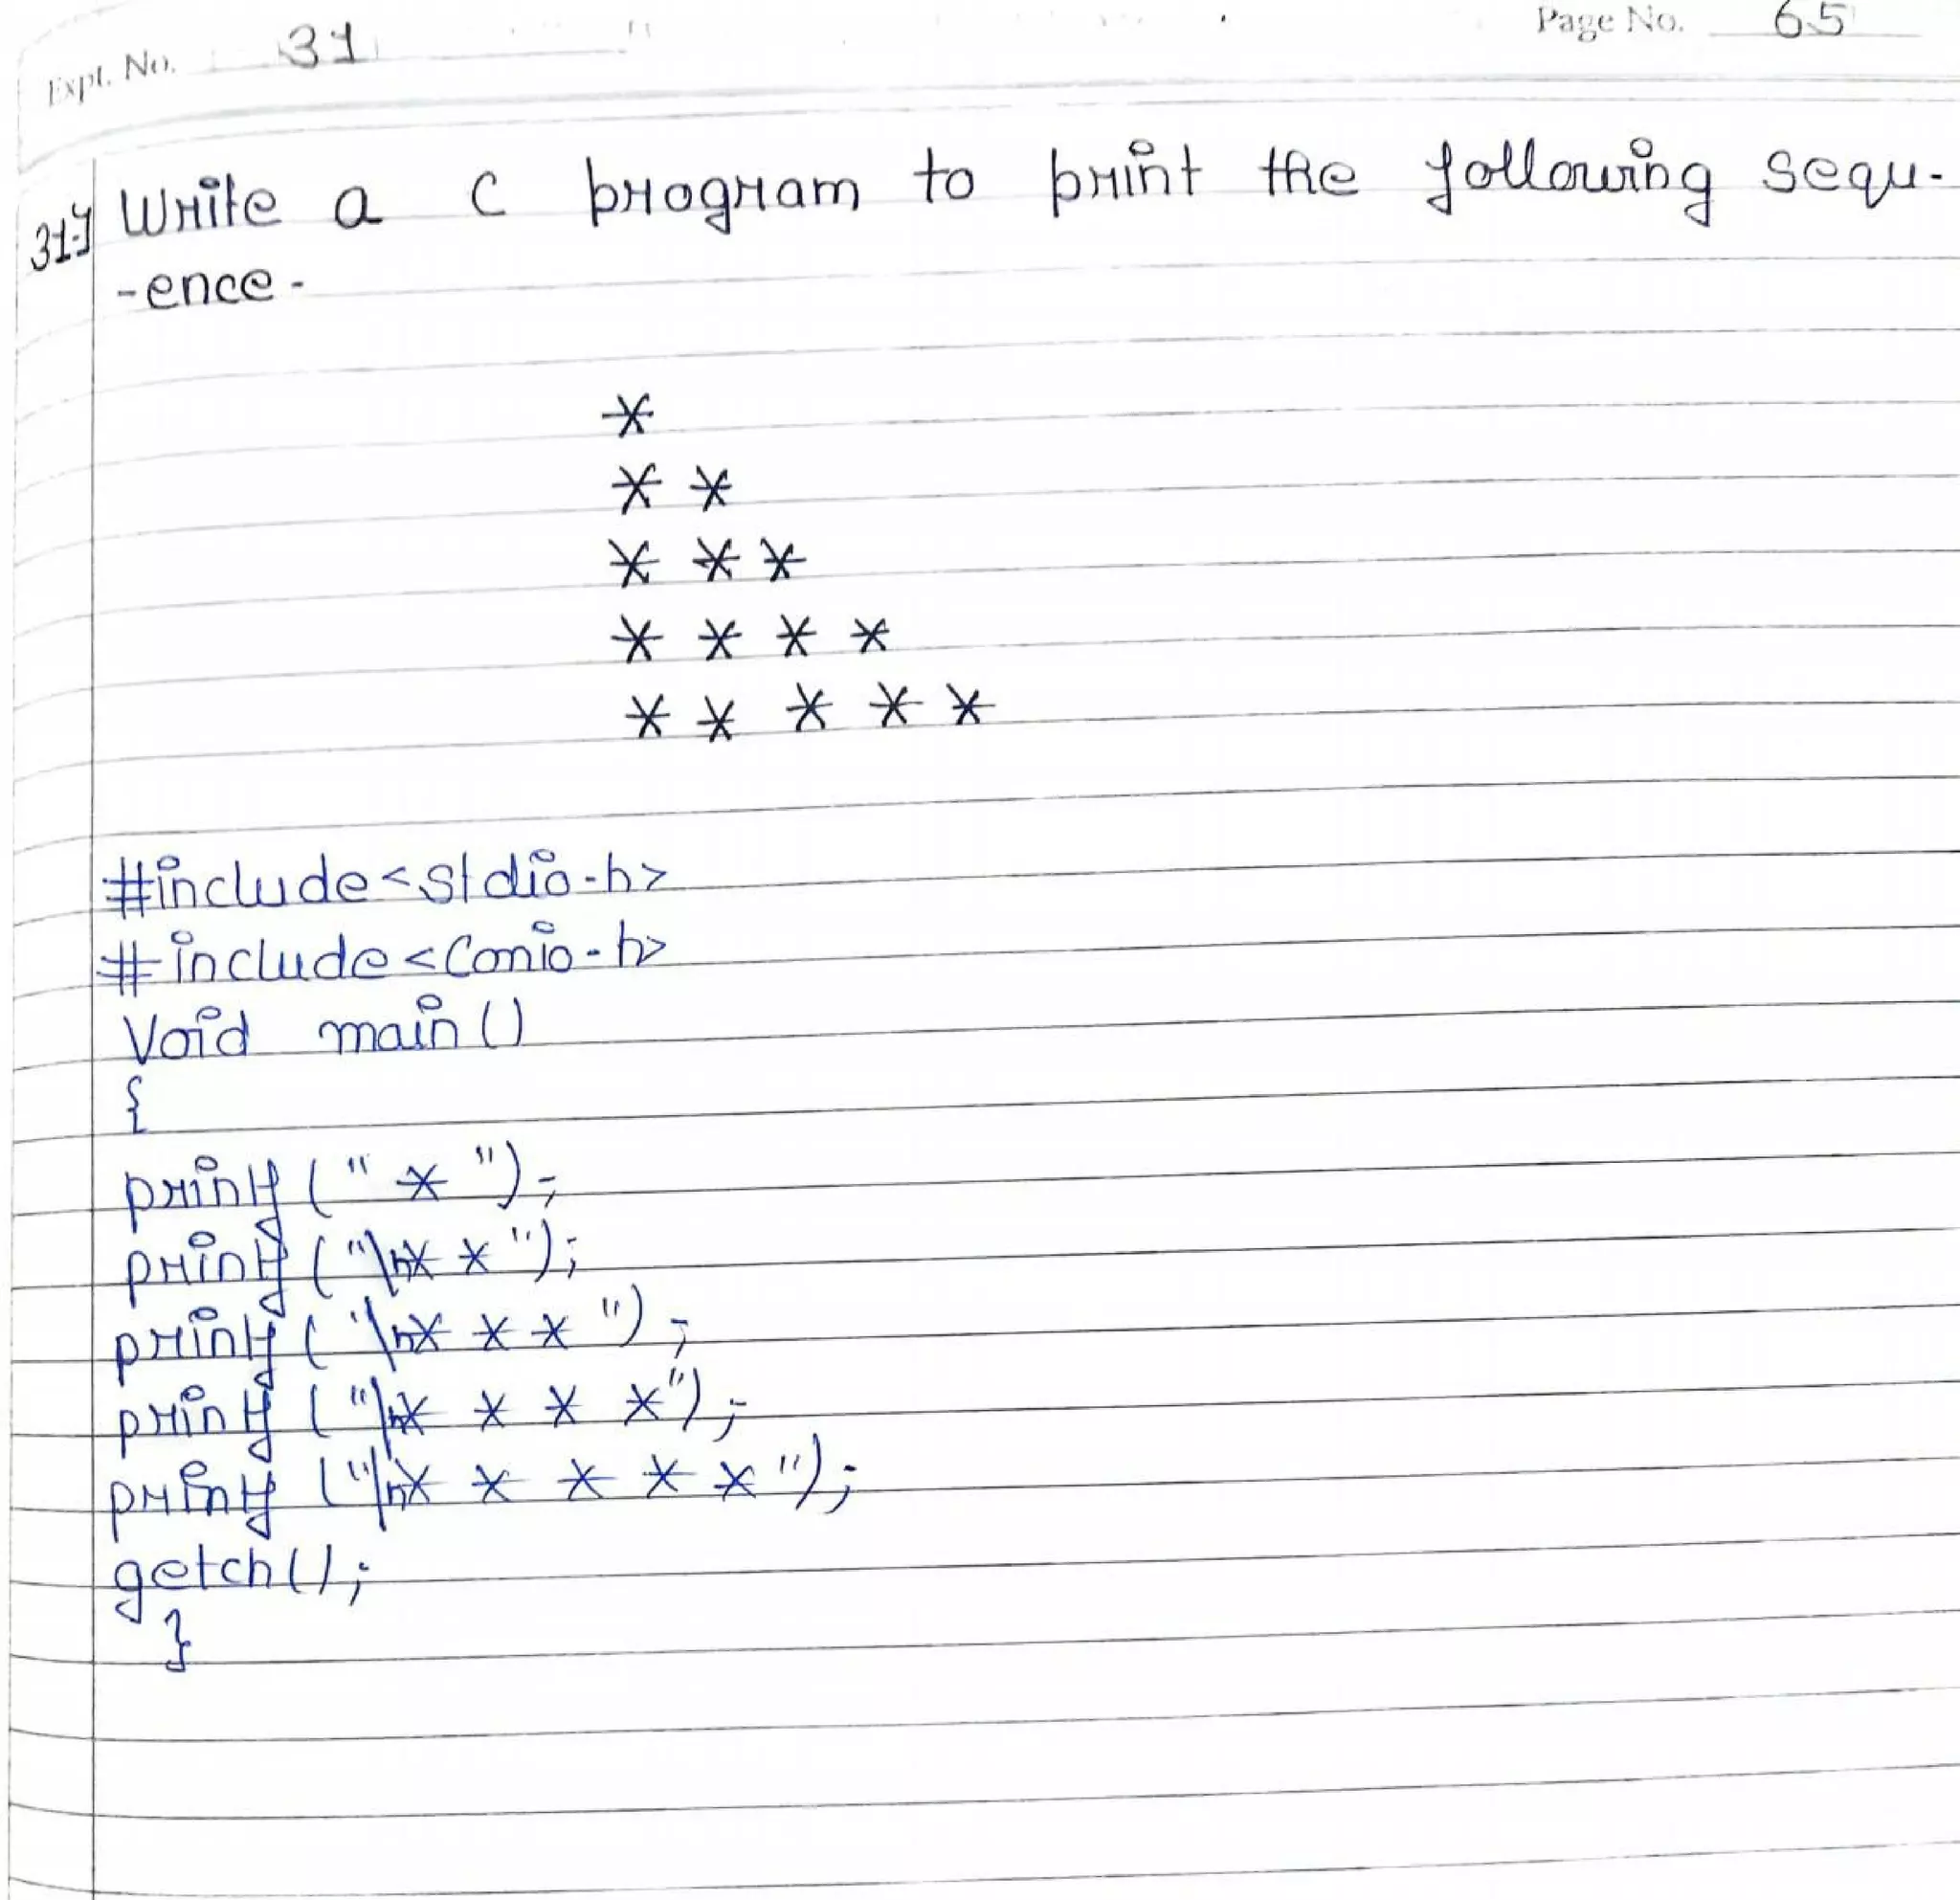 Expt. No. 31
Page No. 65
31.) Write a C program to print the following sequ-
-ence -
*
* *
* * *
* * * *
* * * * *
#include<stdio.h>
#include<Conio.h>
Void main()
{
printf(" * ");
printf("\n* *");
printf("\n* * * ");
printf("\n* * * *");
printf("\n* * * * *");
getch();
}